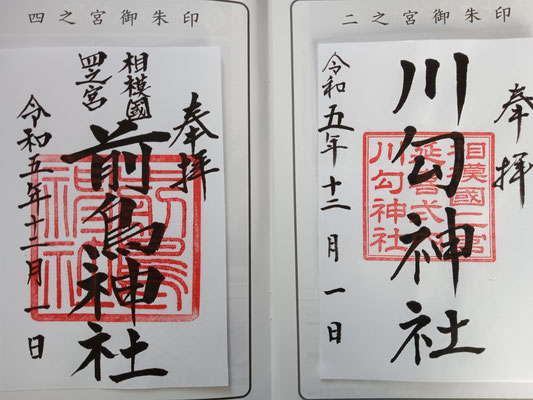 二之宮御朱印
奉拝
川勾神社
相模國二宮
延喜式
川勾神社
令和五年十二月一日
四之宮御朱印
奉拝
相模國
四之宮
前鳥神社
令和五年十二月一日